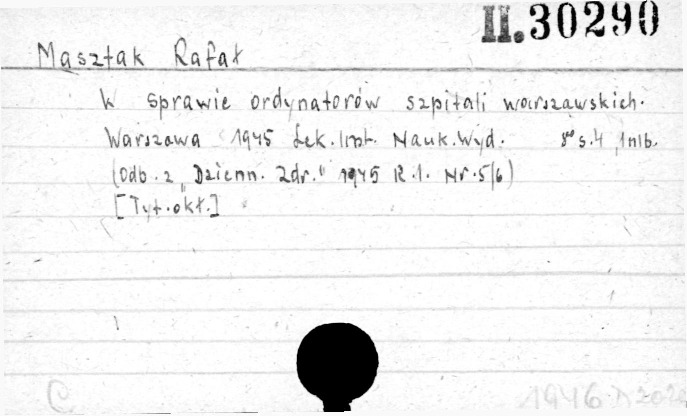 II.30290
Mąsztak Rafał
W sprawie ordynatorów szpitali warszawskich.
Warszawa 1945 Lek. Inst. Nauk. Wyd. 8° s. 4, 1 nlb.
(Odb. z „Dzienn. Zdr." 1945 R. 1. Nr. 5/6)
[Tyt. okł.]
C
1946 D